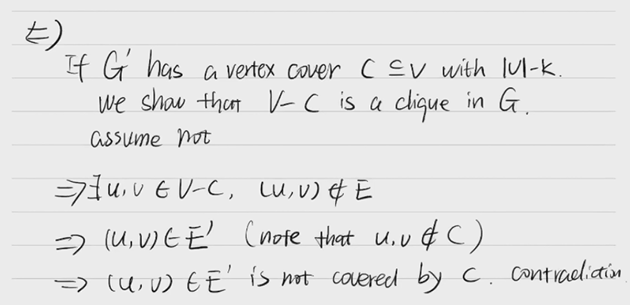 ⇐)
If G' has a vertex cover C ⊆ V with |V|-k.
We show that V-C is a clique in G.
assume not
⇒ ∃ u, v ∈ V-C, (u,v) ∉ E
⇒ (u,v) ∈ E' (note that u,v ∉ C)
⇒ (u,v) ∈ E' is not covered by C. contradiction